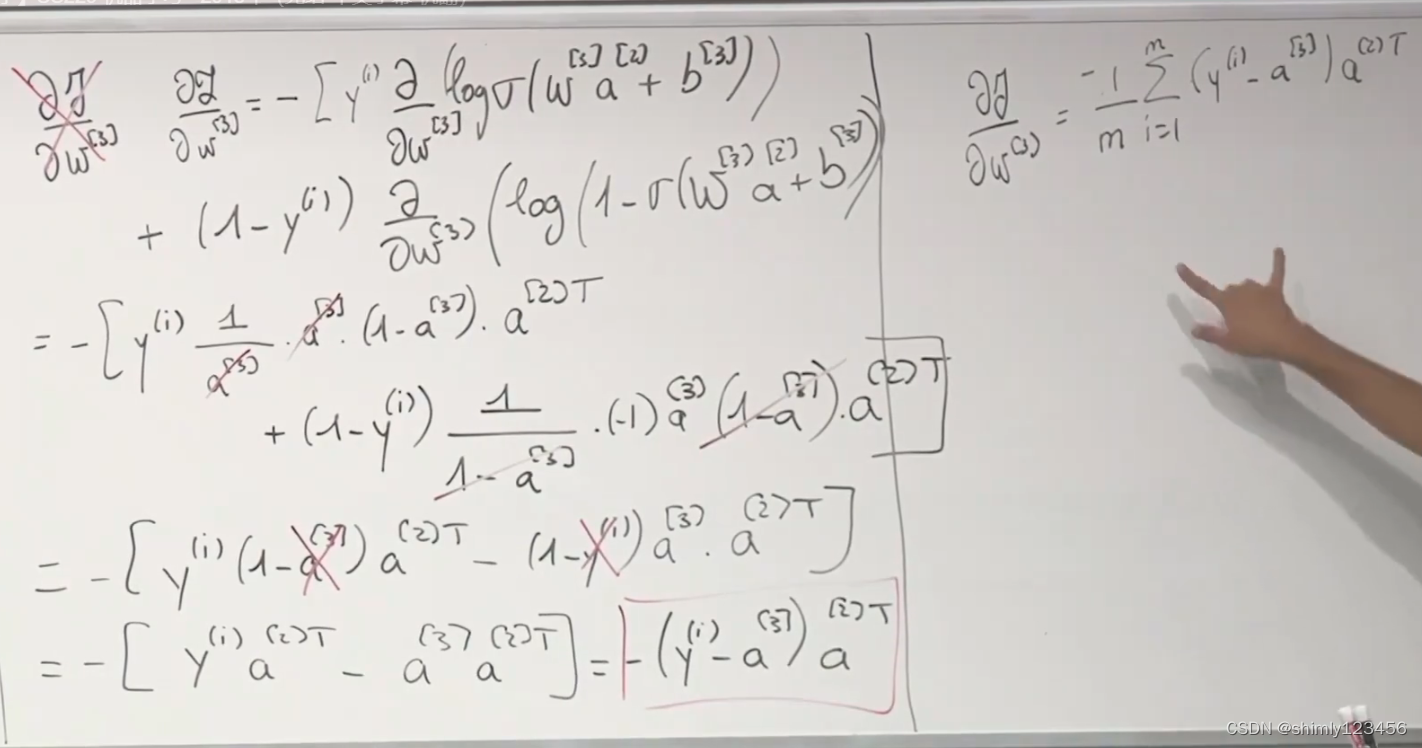 ∂J/∂w^[3] ∂J/∂w^[3] = - [ y^(i) ∂/∂w^[3] (log σ(w^[3] a^[2] + b^[3]))
+ (1 - y^(i)) ∂/∂w^[3] (log(1 - σ(w^[3] a^[2] + b^[3]))
= - [ y^(i) 1/a^[3] · a^[3] · (1 - a^[3]) · a^[2]T
+ (1 - y^(i)) 1/(1 - a^[3]) · (-1) a^[3] (1 - a^[3]) · a^[2]T ]
= - [ y^(i) (1 - a^[3]) a^[2]T - (1 - y^(i)) a^[3] · a^[2]T ]
= - [ y^(i) a^[2]T - a^[3] a^[2]T ] = - (y^(i) - a^[3]) a^[2]T
∂J/∂w^[3] = -1/m Σ_{i=1}^{m} (y^(i) - a^[3]) a^[2]T
CSDN @shimly123456